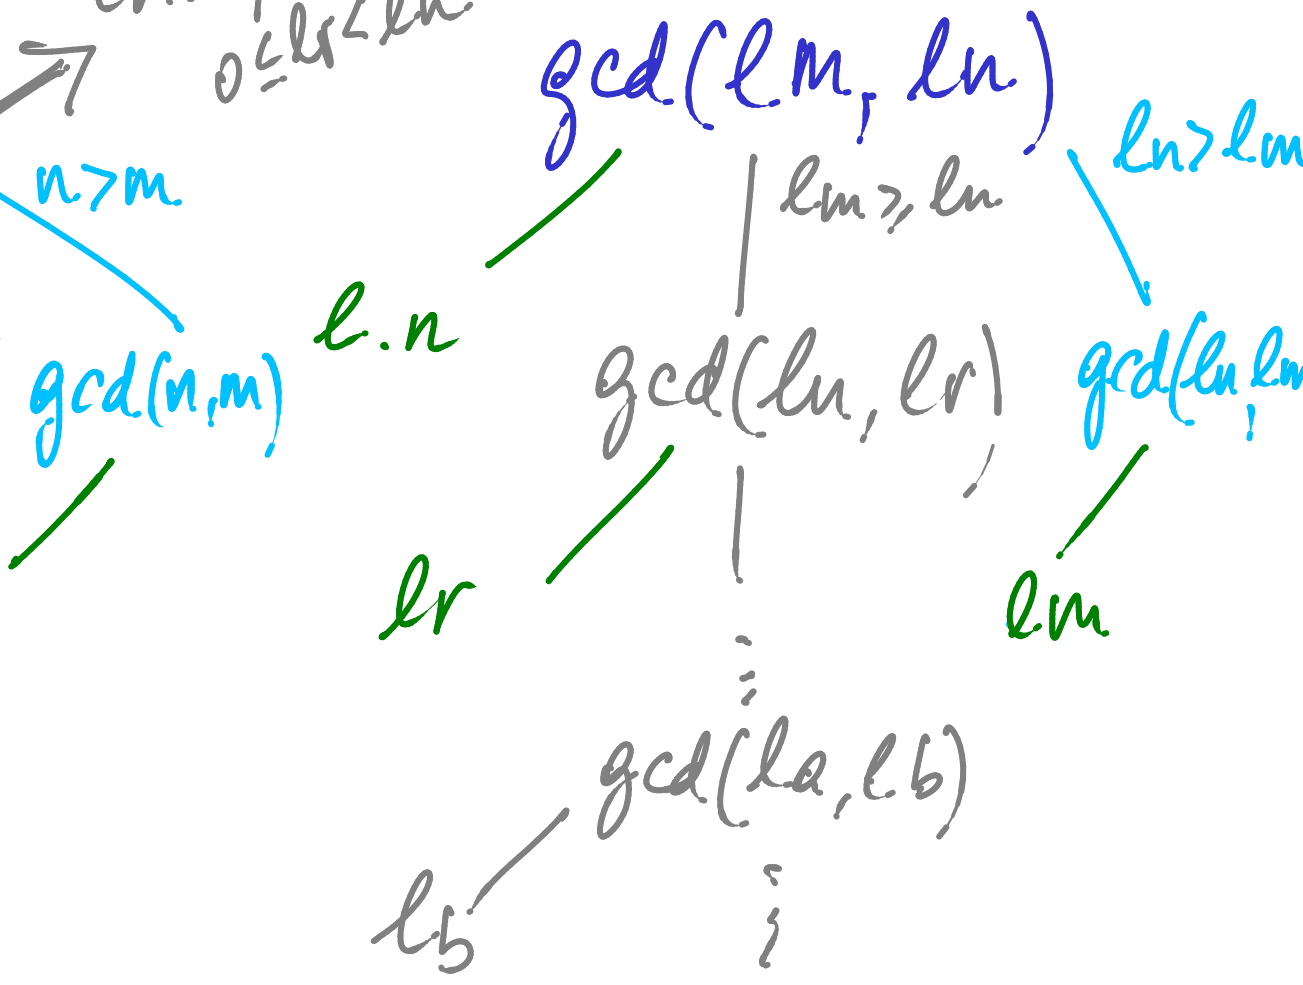 0≤lr<ln.
gcd(lm, ln)
n>m
lm≥ln
ln>lm
l.n
gcd(n,m)
gcd(ln, lr)
gcd(ln, lm
lr
lm
gcd(la, lb)
lb